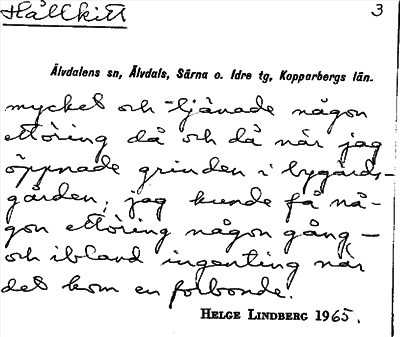 Hållkitt
3
Älvdalens sn, Älvdals, Särna o. Idre tg, Kopparbergs län.
mycket och tjänade någon
ettöring då och då när jag
öppnade grinden i bygårds-
gården; jag kunde få nå-
gon ettöring någon gång –
och ibland ingenting när
det kom en forbonde.
HELGE LINDBERG 1965.